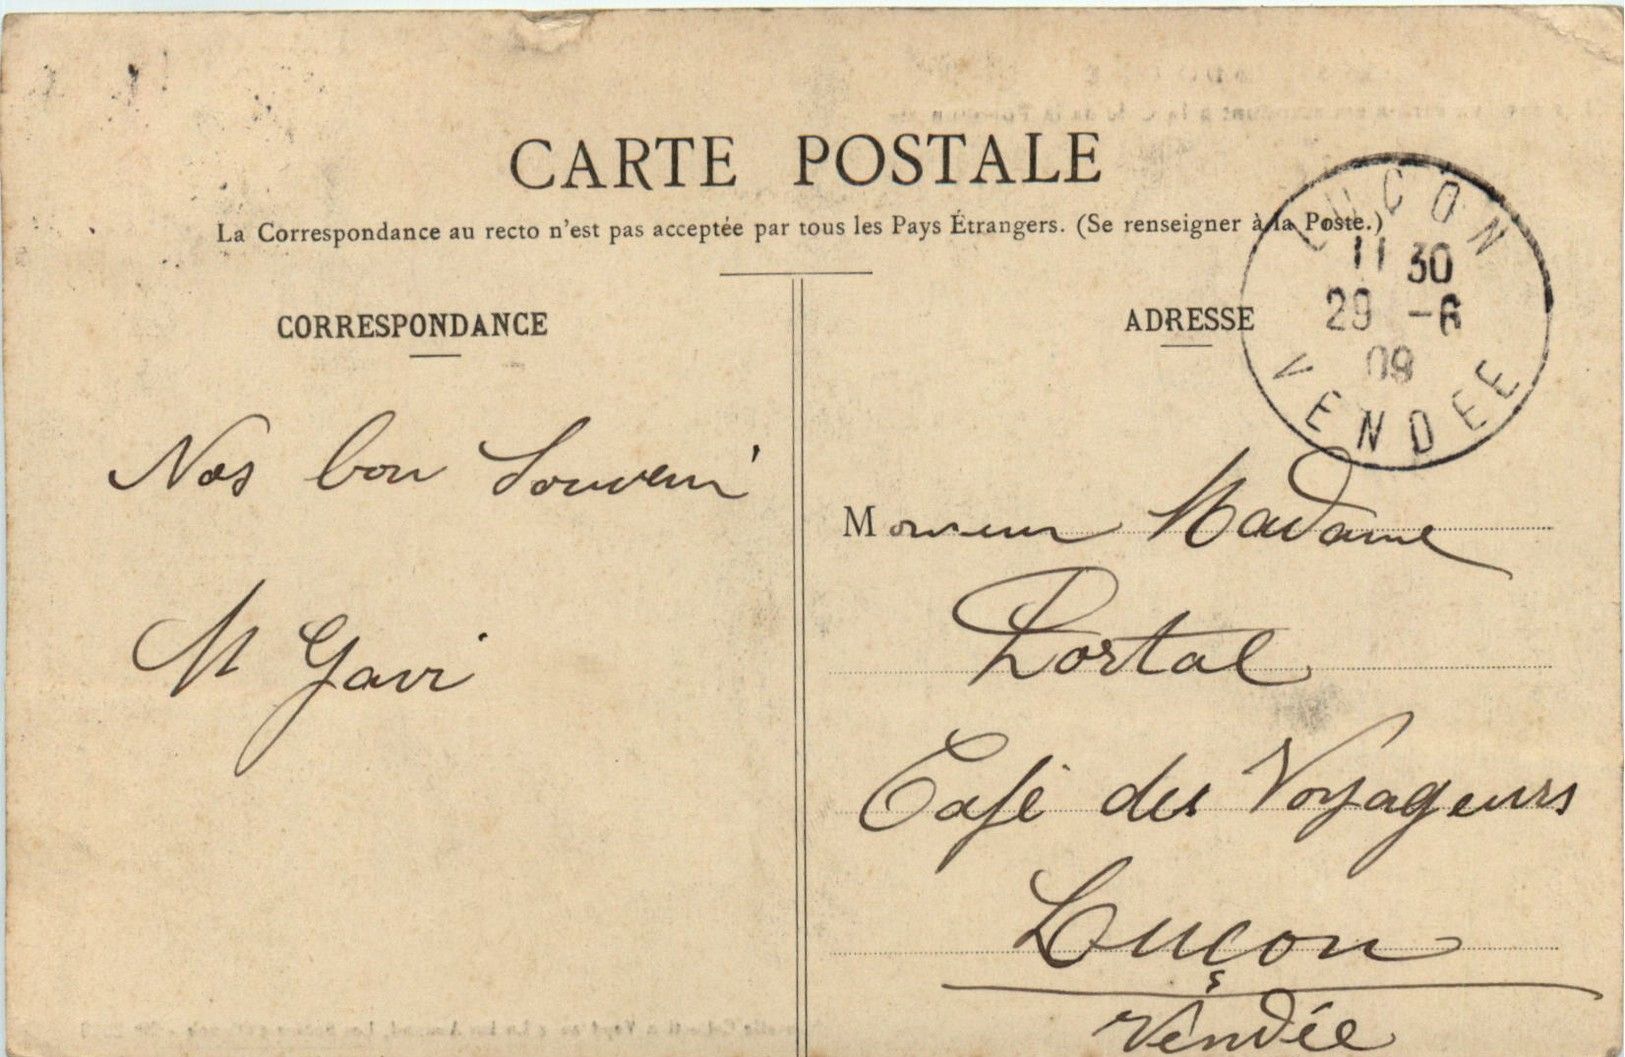 CARTE POSTALE
La Correspondance au recto n'est pas acceptée par tous les Pays Étrangers. (Se renseigner à la Poste.)
CORRESPONDANCE
ADRESSE
LUÇON
11 30
29 -6
09
VENDEE
Nos bon Souvenir
M Gavi
Monsieur Madame
Portal
Café des Voyageurs
Luçon
Vendée